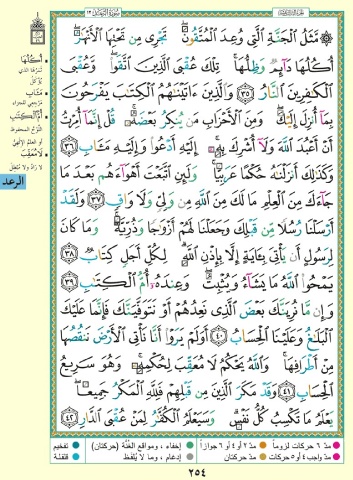 الجزء الثالث عشر
سورة الرعد ١٣
۞ مَّثَلُ ٱلْجَنَّةِ ٱلَّتِى وُعِدَ ٱلْمُتَّقُونَ ۖ تَجْرِى مِن تَحْتِهَا ٱلْأَنْهَٰرُ ۖ
أُكُلُهَا دَآئِمٌ وَظِلُّهَا ۚ تِلْكَ عُقْبَى ٱلَّذِينَ ٱتَّقَوا۟ ۖ وَّعُقْبَى
ٱلْكَٰفِرِينَ ٱلنَّارُ ٣٥ وَٱلَّذِينَ ءَاتَيْنَٰهُمُ ٱلْكِتَٰبَ يَفْرَحُونَ
بِمَآ أُنزِلَ إِلَيْكَ ۖ وَمِنَ ٱلْأَحْزَابِ مَن يُنكِرُ بَعْضَهُۥ ۚ قُلْ إِنَّمَآ أُمِرْتُ
أَنْ أَعْبُدَ ٱللَّهَ وَلَآ أُشْرِكَ بِهِۦٓ ۚ إِلَيْهِ أَدْعُوا۟ وَإِلَيْهِ مَـَٔابِ ٣٦
وَكَذَٰلِكَ أَنزَلْنَٰهُ حُكْمًا عَرَبِيًّا ۚ وَلَئِنِ ٱتَّبَعْتَ أَهْوَآءَهُم بَعْدَ مَا
جَآءَكَ مِنَ ٱلْعِلْمِ مَا لَكَ مِنَ ٱللَّهِ مِن وَلِىٍّ وَلَا وَاقٍ ٣٧ وَلَقَدْ
أَرْسَلْنَا رُسُلًا مِّن قَبْلِكَ وَجَعَلْنَا لَهُمْ أَزْوَٰجًا وَذُرِّيَّةً ۚ وَمَا كَانَ
لِرَسُولٍ أَن يَأْتِىَ بِـَٔايَةٍ إِلَّا بِإِذْنِ ٱللَّهِ ۗ لِكُلِّ أَجَلٍ كِتَابٌ ٣٨
يَمْحُوا۟ ٱللَّهُ مَا يَشَآءُ وَيُثْبِتُ ۖ وَعِندَهُۥٓ أُمُّ ٱلْكِتَٰبِ ٣٩
وَإِن مَّا نُرِيَنَّكَ بَعْضَ ٱلَّذِى نَعِدُهُمْ أَوْ نَتَوَفَّيَنَّكَ فَإِنَّمَا عَلَيْكَ
ٱلْبَلَٰغُ وَعَلَيْنَا ٱلْحِسَابُ ٤٠ أَوَلَمْ يَرَوْا۟ أَنَّا نَأْتِى ٱلْأَرْضَ نَنقُصُهَا
مِنْ أَطْرَافِهَا ۚ وَٱللَّهُ يَحْكُمُ لَا مُعَقِّبَ لِحُكْمِهِۦ ۚ وَهُوَ سَرِيعُ
ٱلْحِسَابِ ٤١ وَقَدْ مَكَرَ ٱلَّذِينَ مِن قَبْلِهِمْ فَلِلَّهِ ٱلْمَكْرُ جَمِيعًا ۖ
يَعْلَمُ مَا تَكْسِبُ كُلُّ نَفْسٍ ۗ وَسَيَعْلَمُ ٱلْكُفَّٰرُ لِمَنْ عُقْبَى ٱلدَّارِ ٤٢
• أُكُلُهَا
• مَـَٔابِ
• أُمُّ ٱلْكِتَٰبِ
• لَا مُعَقِّبَ
الرعد
مدّ ٦ حركات لزوماً
مدّ ٢ أو ٤ أو ٦ جوازاً
مدّ واجب ٤ أو ٥ حركات
مدّ حركتان
إخفاء، ومواقع الغُنَّة (حركتان)
إدغام، وما لا يُلفظ
تفخيم
قلقلة
٢٥٤